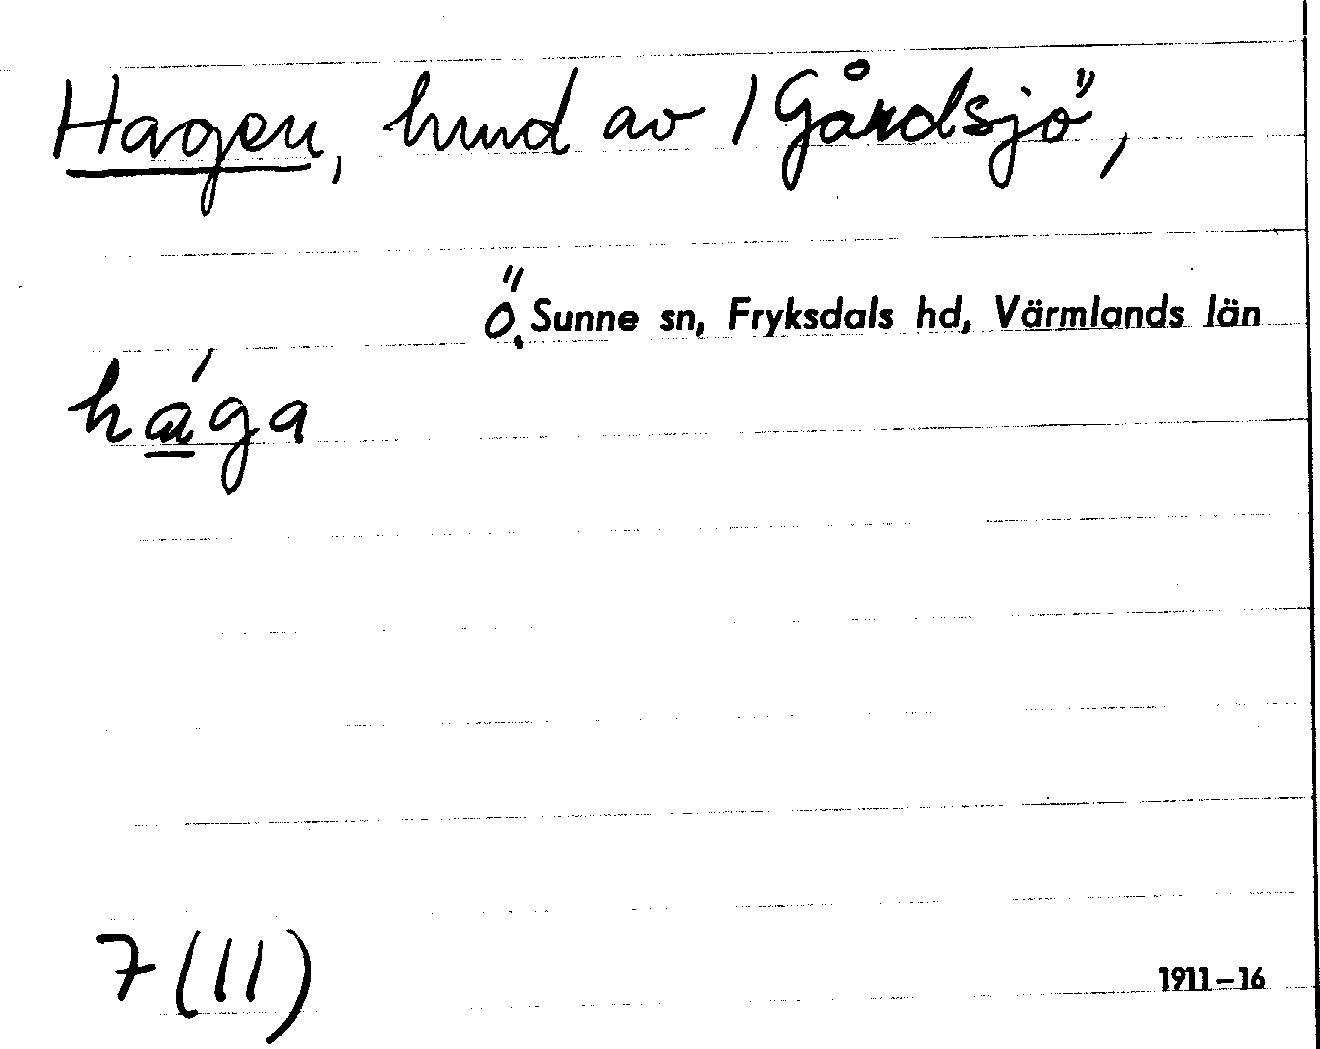 Hagen, hmd av 1 Gårdsjö,
Ö. Sunne sn, Fryksdals hd, Värmlands län
hága
7 (11)
1911–16